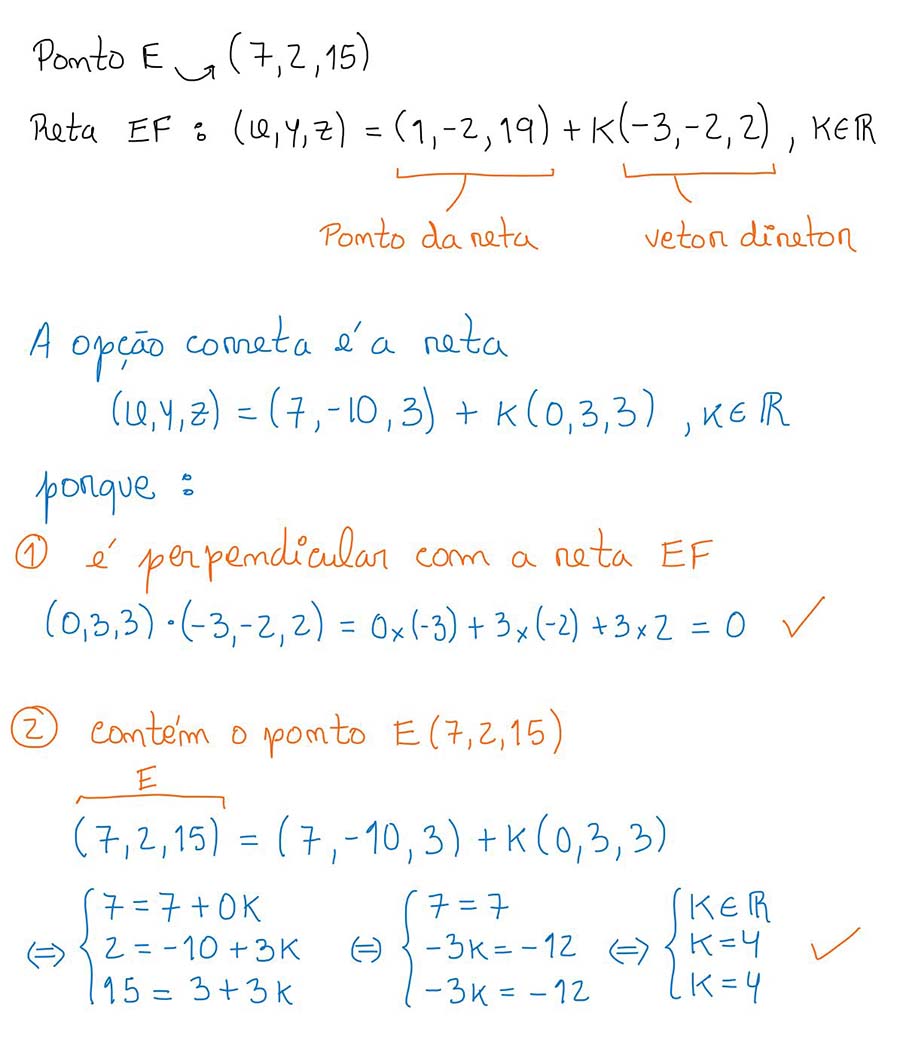 Ponto E (7,2,15)
Reta EF : (x,y,z) = (1,-2,19) + K(-3,-2,2) , K∈ℝ
Ponto da reta
vetor diretor
A opção correta é a reta
(x,y,z) = (7,-10,3) + K(0,3,3) , K∈ℝ
porque :
① é perpendicular com a reta EF
(0,3,3)·(-3,-2,2) = 0×(-3) + 3×(-2) + 3×2 = 0 ✓
② contém o ponto E(7,2,15)
E
(7,2,15) = (7,-10,3) + K(0,3,3)
⇔ { 7 = 7 + 0K ⇔ { 7 = 7 ⇔ { K∈ℝ
2 = -10 + 3K -3K = -12 K = 4 ✓
15 = 3 + 3K -3K = -12 K = 4